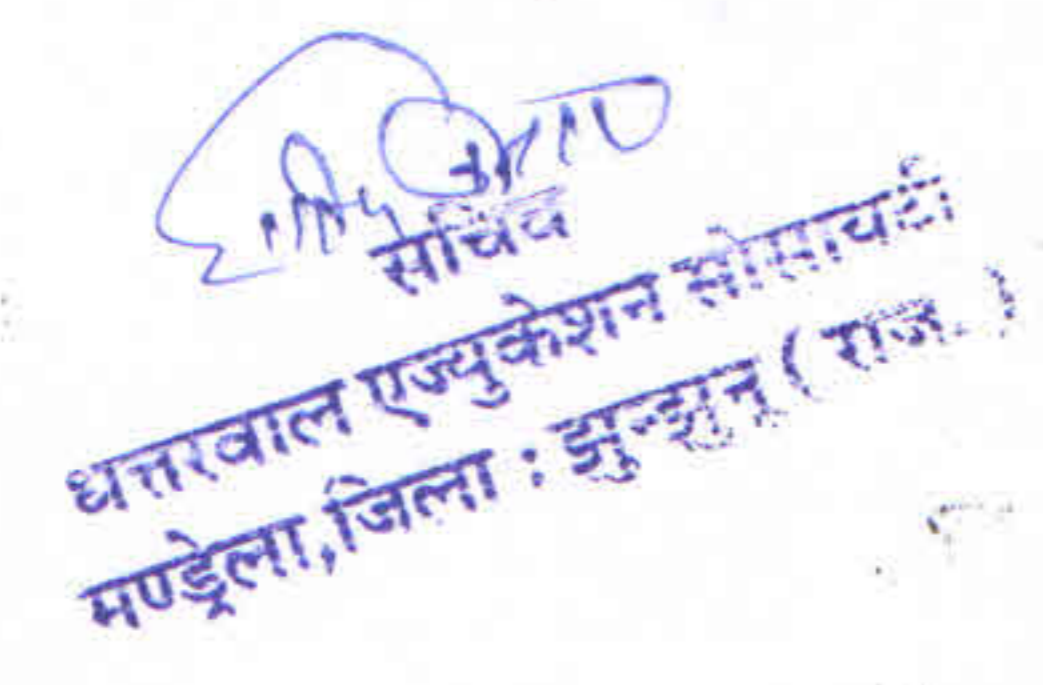 सचिव
धत्तरवाल एज्युकेशन सोसायटी
मण्ड्रेला,जिला : झुन्झुनू ( राज. )